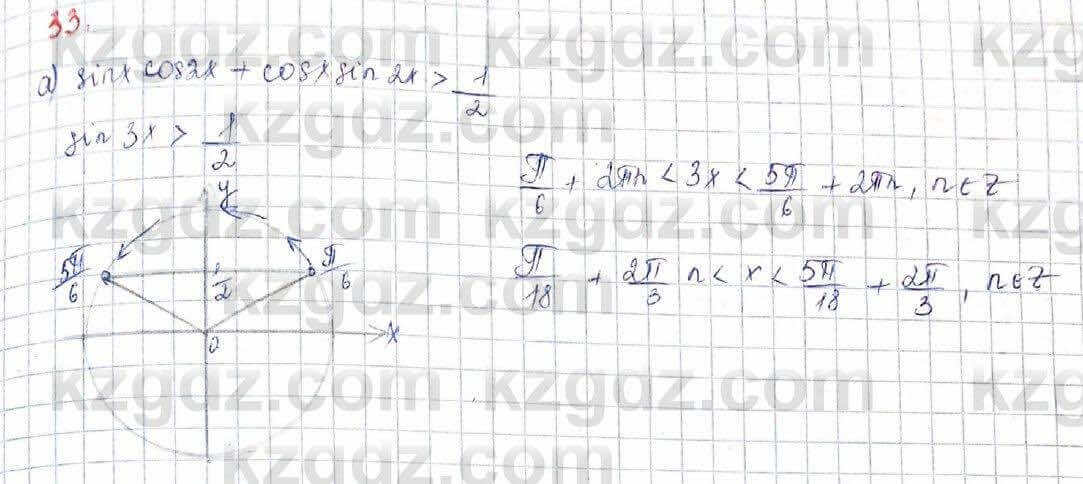 33.
а) sinx cos2x + cosx sin 2x > 1/2
sin 3x > 1/2
π/6 + 2πn < 3x < 5π/6 + 2πn, n∈Z
π/18 + 2π/3 n < x < 5π/18 + 2π/3, n∈Z
y
5π/6
1/2
π/6
0
x
kzgdz.com
kzgdz.com
kzgdz.com
kzgdz.com
kzgdz.com
kzgdz.com
kzgdz.com
kzgdz.com
kzgdz.com
kzgdz.com